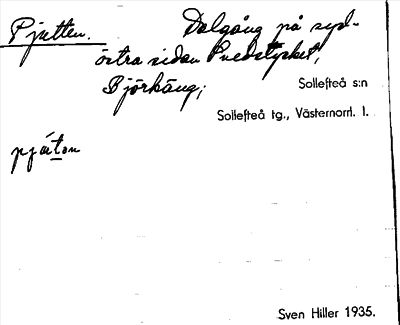 Pjätten. Dalgång på syd-
östra sidan Snedstycket,
Björkäng;
Sollefteå s:n
Sollefteå tg., Västernorrl. l.
pjäton
Sven Hiller 1935.